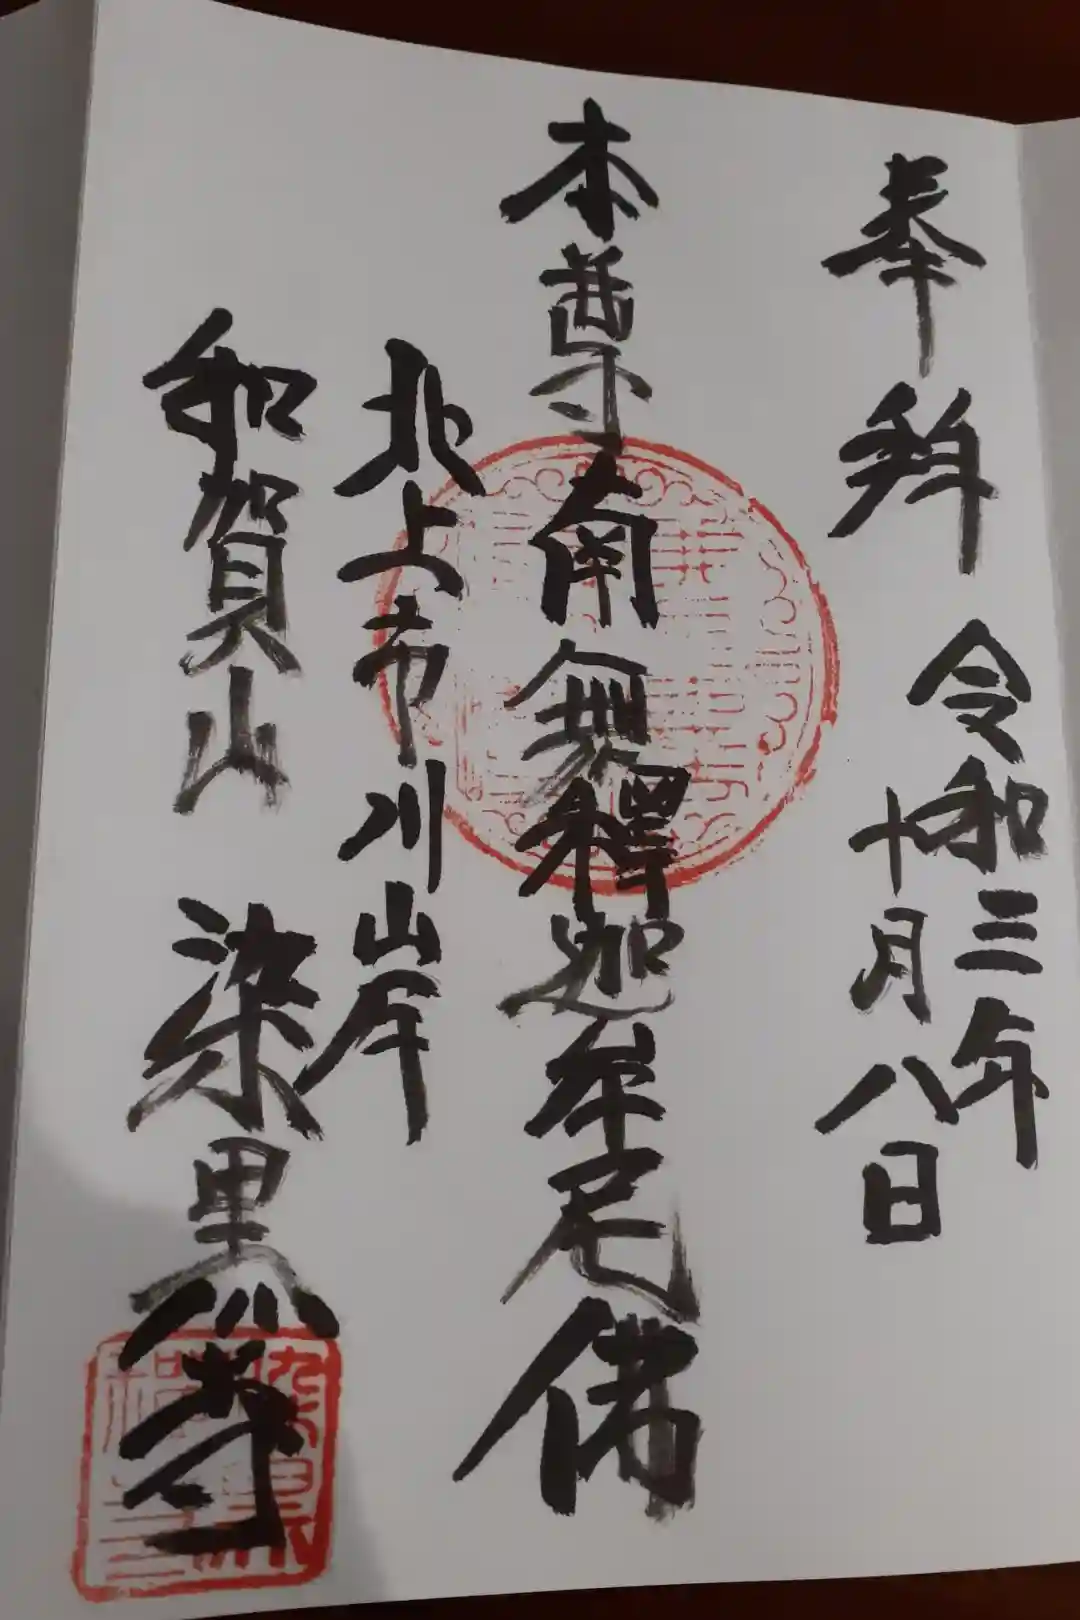 奉拜
令和三年
十月八日
本尊南無釋迦牟尼佛
北上市川岸
和賀山 染黒寺